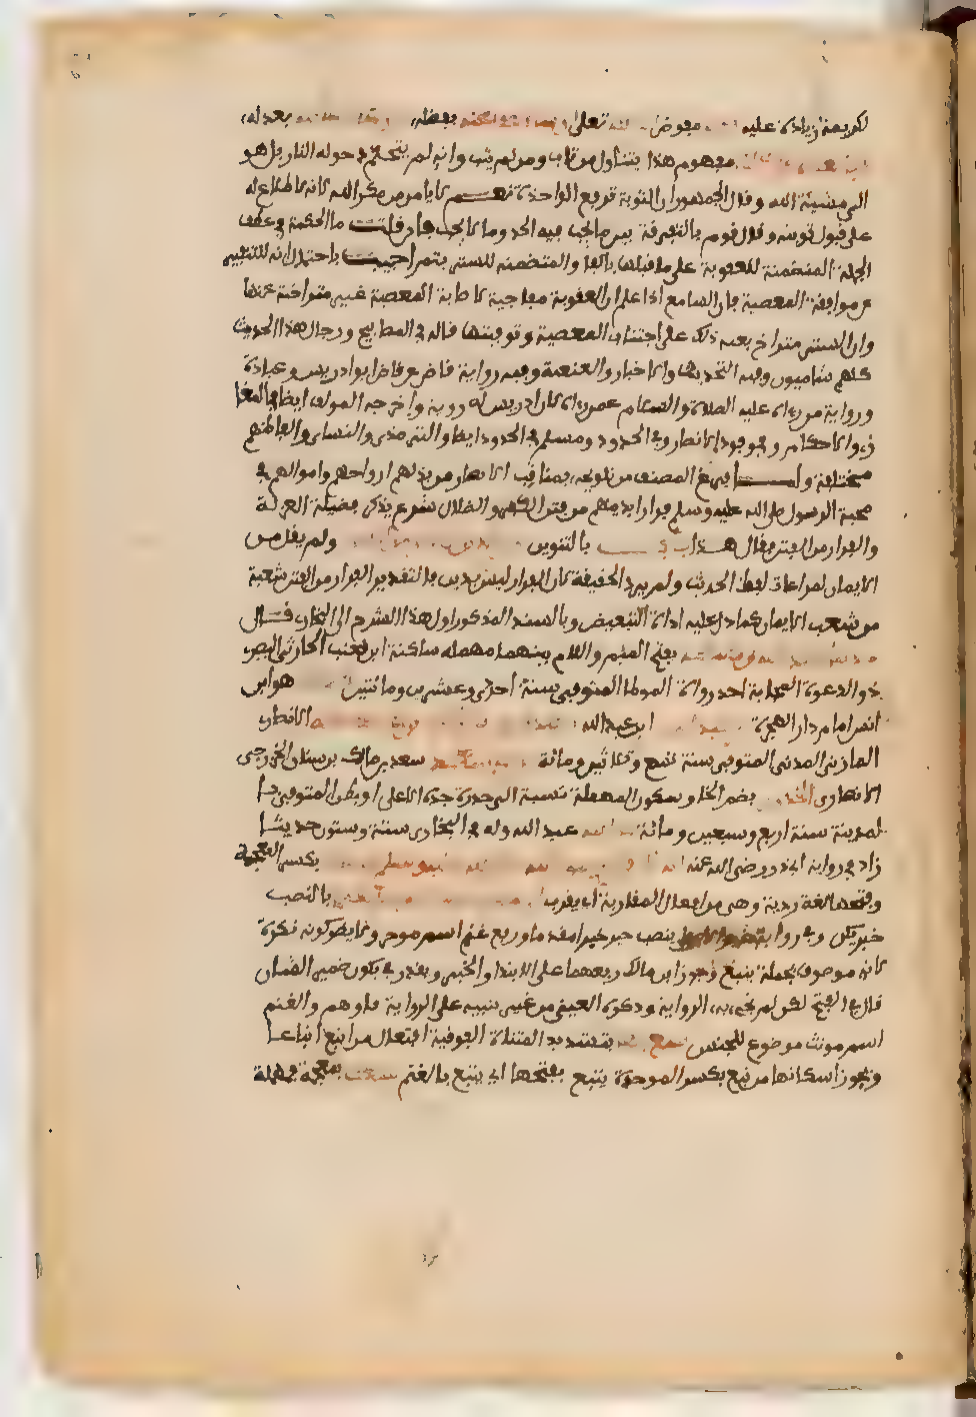 لكريمة زيادة عليه مفوض الله تعالى عنه بفضله بعدله
مفهوم هذا يتناول من تاب ومن لم يتب وانه لم يتحتم دخوله النار بل هو
الى مشيئة الله وقال الجمهور ان التوبة ترفع المواخذة نعم لا يامن من مكر الله لانه لا اطلاع له
على قبول توبته وقال قوم بالتفرقة بين ما يجب فيه الحد وما لا يجب فان قلت ما الحكمة في عطف
الجملة المتضمنة للعقوبة على ما قبلها بالفا والمتضمنة للستر بثم اجيب باحتمال انه للتنفير
عن مواقعة المعصية فان السامع اذا علم ان العقوبة مفاجية لاصابة المعصية غير متراخية عنها
وان الستر متراخ بعثه ذلك على اجتناب المعصية وتوقيها قاله في المصابيح ورجال هذا الحديث
كلهم شاميون وفيه التحديث والاخبار والعنعنة وفيه رواية قاض عن قاض ابو ادريس وعبادة
ورواية من راه عليه الصلاة والسلام عمن راه لان لابي ادريس له روية واخرجه المولف ايضا في المغا
زي والاحكام وفي وفود الانصار وفي الحدود ومسلم في الحدود ايضا والترمذي والنسائي والفاظهم
مختلفة ولما فرغ المصنف من تلويحه بمناقب الانصار من بذلهم ارواحهم واموالهم في
محبة الرسول صلى الله عليه وسلم فرارا بدينهم من فتن الكفر والضلال شرع يذكر فضيلة العزلة
والفرار من الفتن فقال هذا باب بالتنوين ولم يقل من
الايمان لمراعات لفظ الحديث ولم يرد الحقيقة لان الفرار ليس بدين فالتقدير الفرار من الفتن شعبة
من شعب الايمان كما دل عليه اداة التبعيض وبالسند المذكور اول هذا الشرح الى البخاري قال
بفتح الميم واللام بينهما مهملة ساكنة ابن قعنب الحارثي البصري
ذو الدعوة المجابة احد رواة الموطا المتوفى سنة احدى وعشرين ومائتين هو ابن
انس امام دار الهجرة ابن عبد الله الانصاري
المازني المدني المتوفى سنة تسع وثلاثين ومائة سعد بن مالك بن سنان الخزرجي
الانصاري الخدري بضم الخا وسكون المهملة نسبة الى خدرة جده الاعلى او بطن المتوفى با
لمدينة سنة اربع وسبعين ومائة عبد الله وله في البخاري ستة وستون حديثا
زاد في رواية ابي ذر رضي الله عنه بكسر المعجمة
وفتحها لغة ردية وهي من افعال المقاربة اي يقرب بالنصب
خبر يكن وفي رواية بنصب خبر خبرا مقدما ورفع غنم اسم موخر ولا يضر كونه نكرة
لانه موصوف بجملة يتبع وجوز ابن مالك رفعهما على الابتدا والخبر ويقدر في يكون ضمير الشان
قال في الفتح لكن لم تجيء به الرواية وذكره العيني من غير تنبيه على الرواية فاوهم والغنم
اسم مونث موضوع للجنس بتشديد المثناة الفوقية افتعال من اتبع اتباعا
ويجوز اسكانها من تبع بكسر الموحدة يتبع بفتحها اي يتبع بالغنم بمعجمة فمهملة